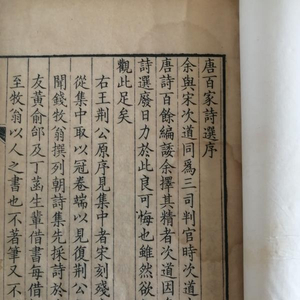 唐百家詩選序
余與宋次道同爲三司判官時次道
唐詩百餘編諉余擇其精者次道因
詩選廢日力於此良可悔也雖然欲
觀此足矣
右王荆公原序見集中者宋刻殘
從集中取以冠卷端以見復荆公
聞錢牧翁撰列朝詩集先採詩於
友黄俞邰及丁菡生輩借書每借
至牧翁以人之書也不著筆又不